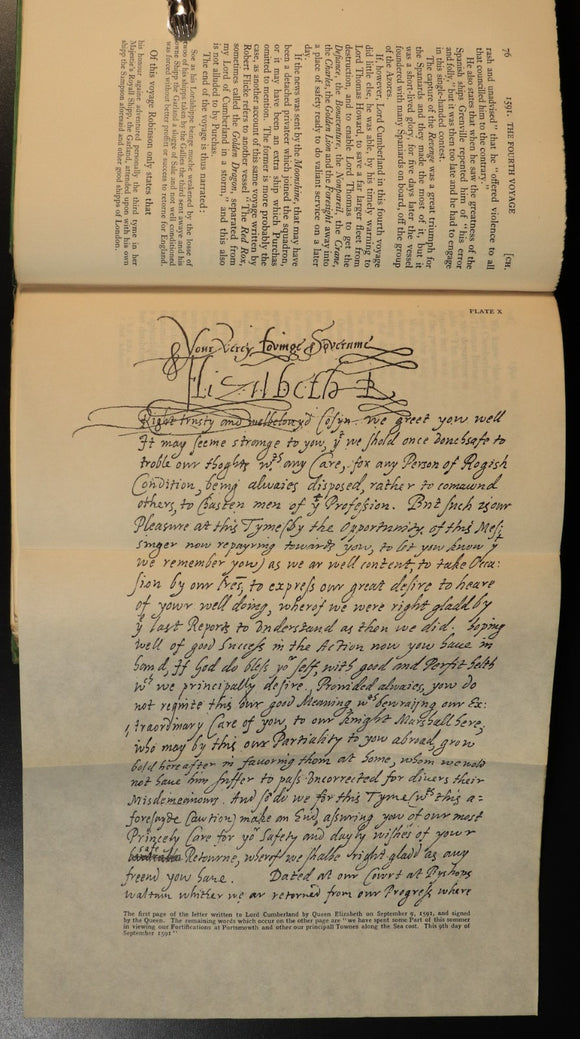 76 1591. THE FOURTH VOYAGE [CH.
rash and unadvised" that he "offered violence to all
that counselled him to the contrary."
He also states that when he saw the greatness of the
Spanish ships Grenville repented him of "his error
and folly," but it was then too late and he had to engage
in this single-handed contest.
The capture of the Revenge was a great triumph for
the Spaniards, and they made the most of it, but it
was a short-lived glory, for five days later the vessel
foundered with many Spaniards on board, off the group
of the Azores.
If, however, Lord Cumberland in this fourth voyage
did little else, he was able, by his timely warning to
Lord Thomas Howard, to save a far larger fleet from
destruction, and to enable Lord Thomas to get the
Defiance, the Bonaventure, the Nonpareil, the Crane,
the Charles, the Golden Lion and the Foresight away into
a place of safety ready to do valiant service on a later
day.
If the news was sent by the Moonshine, that may have
been a detached privateer which joined the squadron,
or it may have been an extra ship which Purchas
omitted to mention. The former is more probably the
case, as another account of this same voyage written by
Robert Flicke refers to another vessel "The Red Rox,
sometimes called the Golden Dragon, separated from
my Lord of Cumberland in a storm," and this also
is not alluded to by Purchas.
The end of the voyage is thus narrated:
Soe as his Lordshippe beinge muche weakened by the losse of
twoo of his Shippes when the Galeon the third sent awaye and his
owne Shipp the Garland a slugge of Saile and not well Conditioned
was forced without better profitt or success to retorne for England.
Of this voyage Robinson only states that
his honour again adventured personally the third tyme in her
Majestie's Royall Shipp, the Garland, attended upon with his own
shipp the Sampson aforesaid and other good shipps of London.
PLATE X
Your Verey loving Soveraine
Elizabeth R
Right trusty and welbelovyd Cosyn. we greet you well
It may seeme strange to you, yt we shold once vouchsafe to
troble our thoghts wth any Care, for any Person of Rogish
Condition, being alwaies disposed, rather to comawnd
others, to Chasten men of yt Profession. But such is our
Pleasure at this Tyme (by the Opportunity of this Mes:
singer now repayring towards you, to let you know yt
we remember you) as we ar well content, to take Occa:
sion by our lres, to express our great desire to heare
of your well doing, wherof we were right gladd by
yr last Reports to Understand as then we did. hoping
well of good Success in the Action now you have in
hand, If God do bless yor self, with good and Perfit helth
wch we principally desire. Provided alwaies, you do
not requite this our good Meaning wth bewraying our Ex:
traordinary Care of you, to our knight Marshall here,
who may by this our Partiality to you abroad, grow
bold hereafter in favoring them at home, whom we wold
not have him suffer to pass Uncorrected for divers their
Misdemeanours. And so do we for this Tyme (wth this a=
foresayde Caution) make an End, assuring you of our most
Princely Care for yor Safety and dayly wishes of your
safe
Retourne, wherof we shalbe right gladd as any
freend you have. Dated at our Court at Byshops
waltam whither we ar retorned from our Progress where
The first page of the letter written to Lord Cumberland by Queen Elizabeth on September 9, 1591, and signed
by the Queen. The remaining words which occur on the other page are "we have spent some Part of this sommer
in viewing our Fortifications at Portesmowth and other our principall Townes along the Sea cost. This 9th day of
September 1591"